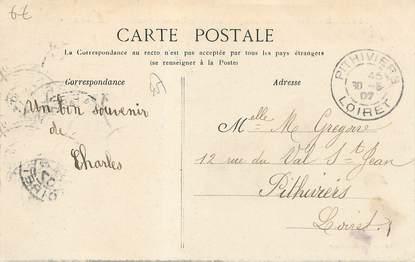 6€
CARTE POSTALE
La Correspondance au recto n'est pas acceptée par tous les pays étrangers
(se renseigner à la Poste)
Correspondance
Adresse
PITHIVIERS
45
30-5
07
LOIRET
Un bon souvenir
de
Charles
Melle M Gregoire
12 rue du Val St Jean
Pithiviers
Loiret